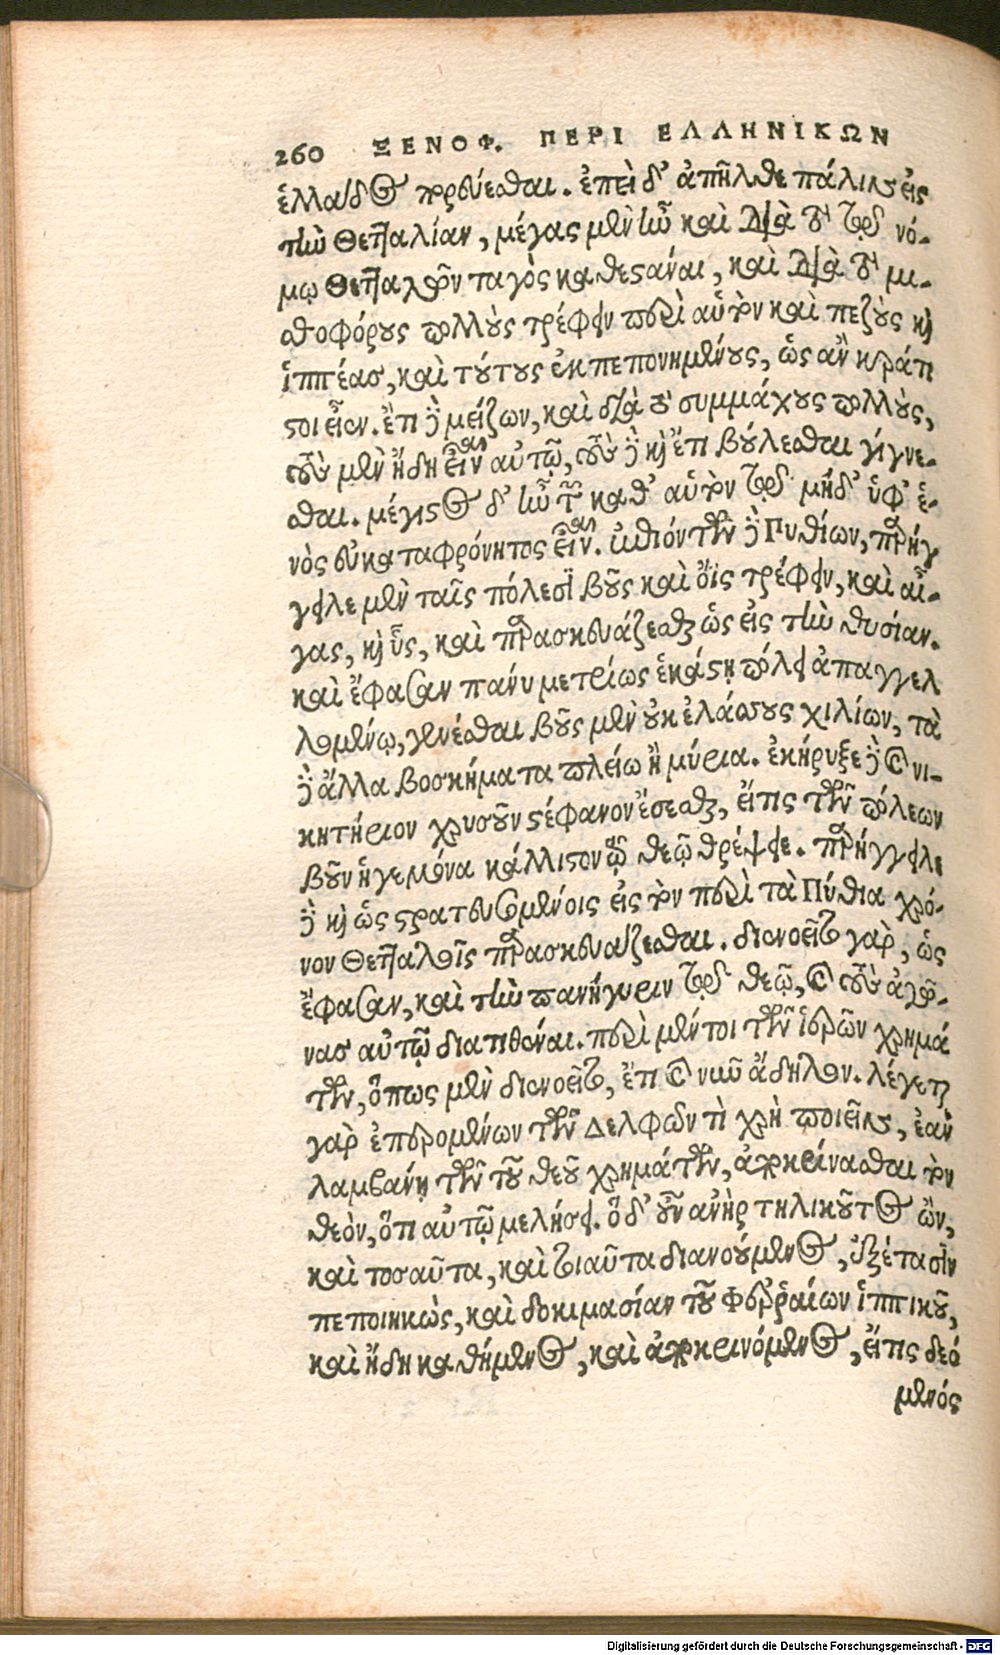 260 ΞΕΝΟΦ. ΠΕΡΙ ΕΛΛΗΝΙΚΩΝ
ἑλλάδος πορεύεσθαι. ἐπεὶ δ' ἀπῆλθε πάλιν εἰς
τὴν Θετταλίαν, μέγας μὲν ἦν καὶ διὰ τὸ τῷ νό-
μῳ Θετταλῶν ταγὸς καθεστάναι, καὶ διὰ τὸ μι-
σθοφόρους πολλοὺς τρέφειν περὶ αὑτὸν καὶ πεζοὺς καὶ
ἱππέας, καὶ τούτους ἐκπεπονημένους, ὡς ἂν κράτι
στοι εἶεν. ἔτι δὲ μείζων, καὶ διὰ τὸ συμμάχους πολλοὺς,
τοὺς μὲν ἤδη εἶναι αὐτῷ, τοὺς δὲ καὶ ἔτι βούλεσθαι γίγνε-
σθαι. μέγιστος δ' ἦν τῶν καθ' αὑτὸν τῷ μηδ' ὑφ' ἑ-
νὸς εὐκαταφρόνητος εἶναι. ἐπιόντων δὲ Πυθίων, παρήγ
γειλε μὲν ταῖς πόλεσι βοῦς καὶ ὄϊς τρέφειν, καὶ αἶ-
γας, καὶ ὗς, καὶ παρασκευάζεσθαι ὡς εἰς τὴν θυσίαν.
καὶ ἔφασαν πάνυ μετρίως ἑκάστῃ πόλει ἀπαγγελ
λομένῳ, γενέσθαι βοῦς μὲν οὐκ ἐλάσσους χιλίων, τὰ
δὲ ἄλλα βοσκήματα πλείω ἢ μύρια. ἐκήρυξε δὲ καὶ νι-
κητήριον χρυσοῦν στέφανον ἔσεσθαι, εἴτις τῶν πόλεων
βοῦν ἡγεμόνα κάλλιστον τῷ θεῷ θρέψειε. παρήγγειλε
δὲ καὶ ὡς στρατευσομένοις εἰς τὸν περὶ τὰ Πύθια χρό-
νον Θετταλοῖς παρασκευάζεσθαι. διενοεῖτο γὰρ, ὡς
ἔφασαν, καὶ τὴν πανήγυριν τῷ θεῷ, καὶ τοὺς ἀγῶ-
νας αὐτῷ διατιθέναι. περὶ μέντοι τῶν ἱερῶν χρημά
των, ὅπως μὲν διενοεῖτο, ἔτι καὶ νῦν ἄδηλον. λέγεται
γὰρ ἐπερομένων τῶν Δελφῶν τὶ χρὴ ποιεῖν, ἐὰν
λαμβάνῃ τῶν τοῦ θεοῦ χρημάτων, ἀποκρίνασθαι τὸν
θεὸν, ὅτι αὐτῷ μελήσει. ὁ δ' οὖν ἀνὴρ τηλικοῦτος ὢν,
καὶ τοσαῦτα, καὶ τοιαῦτα διανοούμενος, ἐξέτασιν
πεποιηκὼς, καὶ δοκιμασίαν τοῦ Φεραίων ἱππικοῦ,
καὶ ἤδη καθήμενος, καὶ ἀποκρινόμενος, εἴτις δεό
μενός
Digitalisierung gefördert durch die Deutsche Forschungsgemeinschaft - DFG